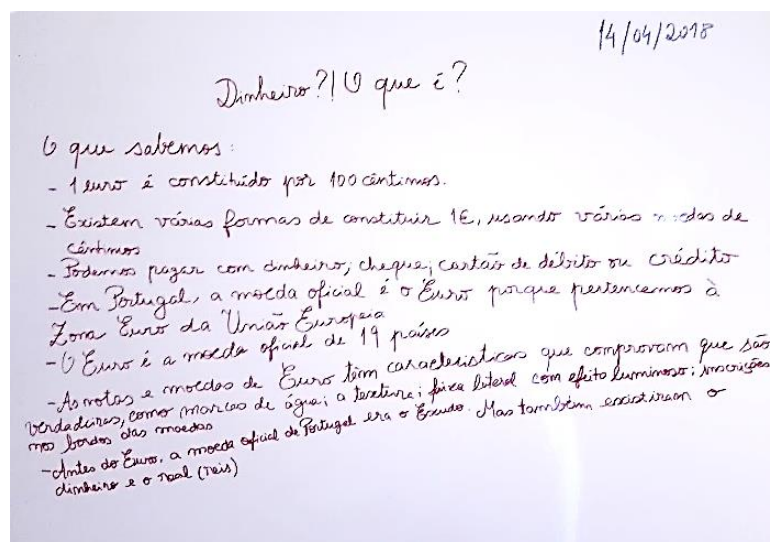 14/04/2018
Dinheiro?! O que é?
O que sabemos:
- 1 euro é constituído por 100 cêntimos.
- Existem várias formas de constituir 1€, usando várias moedas de
cêntimos
- Podemos pagar com dinheiro; cheque; cartão de débito ou crédito
- Em Portugal, a moeda oficial é o Euro porque pertencemos à
Zona Euro da União Europeia
- O Euro é a moeda oficial de 19 países
- As notas e moedas de Euro têm características que comprovam que são
verdadeiras, como marcas de água; a textura; faixa lateral com efeito luminoso; inscrições
nos bordos das moedas
- Antes do Euro, a moeda oficial de Portugal era o Escudo. Mas também existiram o
dinheiro e o real (reis)